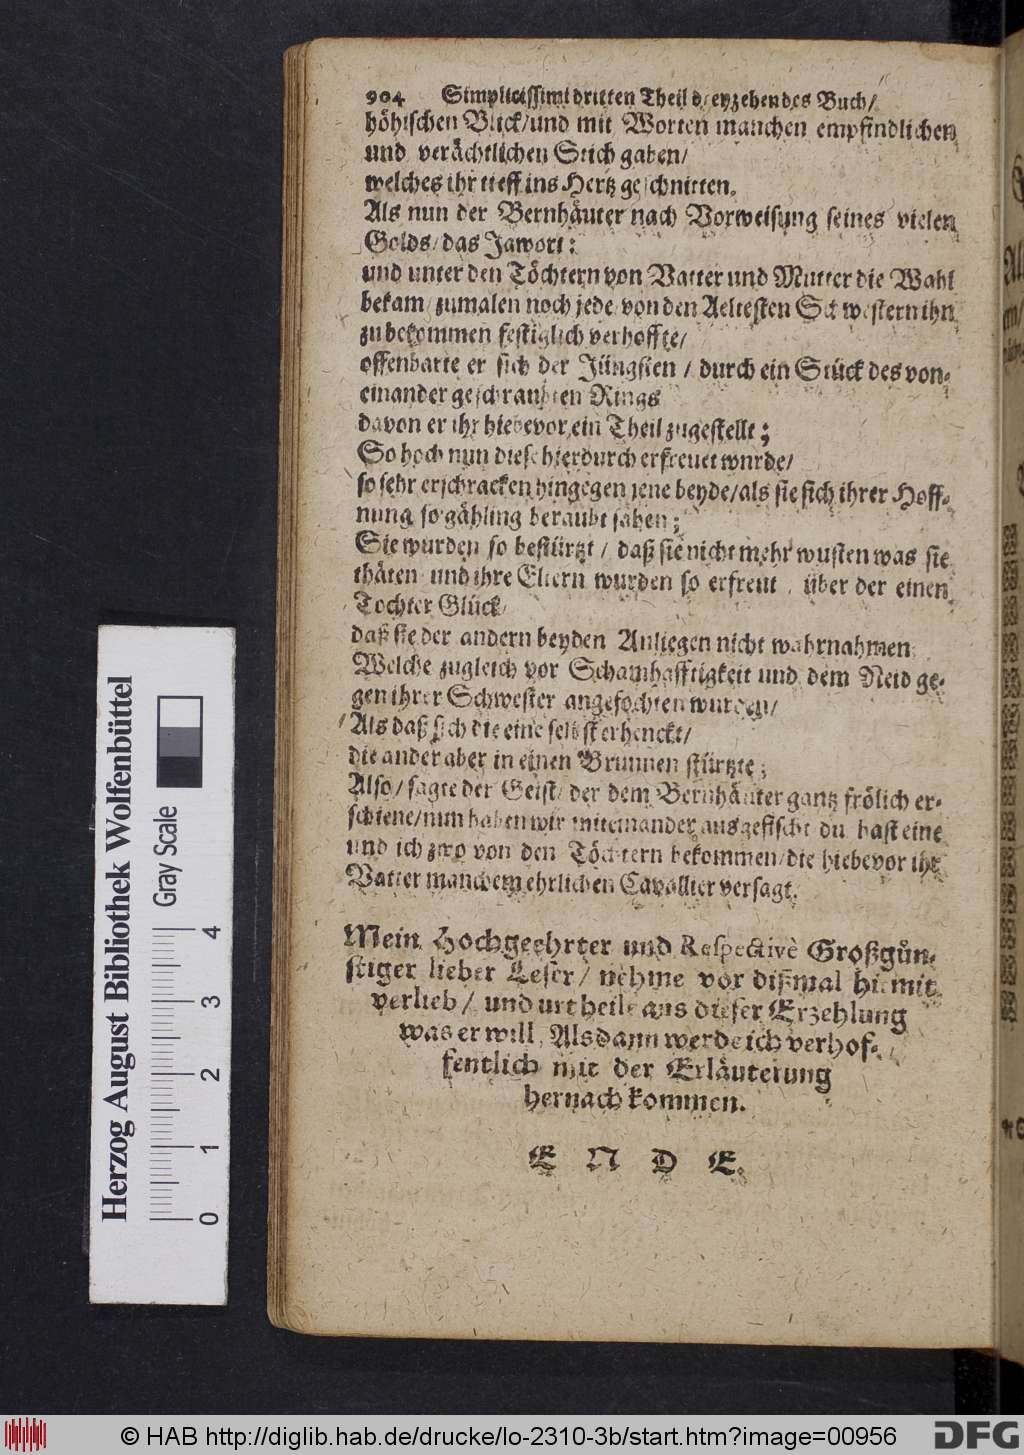 904 Simplicissimi dritten Theil dreyzehendes Buch/
höhischen Blick/und mit Worten manchen empfindlichen
und verächtlichen Stich gaben/
welches ihr tieff ins Hertz geschnitten.
Als nun der Bernhäuter nach Vorweisung seines vielen
Golds/das Jawort:
und unter den Töchtern von Vatter und Mutter die Wahl
bekam/zumalen noch jede von den Aeltesten Schwestern ihn
zu bekommen festiglich verhoffte/
offenbarte er sich der Jüngsten / durch ein Stück des von-
einander geschraubten Rings
davon er ihr hiebevor ein Theil zugestellt;
So hoch nun diese hierdurch erfreuet wurde/
so sehr erschracken hingegen jene beyde/als sie sich ihrer Hoff-
nung so gähling beraubt sahen;
Sie wurden so bestürtzt / daß sie nicht mehr wusten was sie
thäten und ihre Eltern wurden so erfreut , über der einen
Tochter Glück/
daß sie der andern beyden Anliegen nicht wahrnahmen;
Welche zugleich vor Schamhafftigkeit und dem Neid ge-
gen ihrer Schwester angefochten wurden/
Als daß sich die eine selbst erhenckt/
die ander aber in einen Brunnen stürtzte;
Also/sagte der Geist/der dem Bernhäuter gantz frölich er-
schiene/nun haben wir miteinander ausgefischt du hast eine
und ich zwo von den Töchtern bekommen/die hiebevor ihr
Vatter manchem ehrlichen Cavallier versagt.
Mein Hochgeehrter und Respectivè Großgün-
stiger lieber Leser/ nehme vor dißmal hiemit
verlieb/ und urtheile aus dieser Erzehlung
was er will, Alsdann werde ich verhof-
fentlich mit der Erläuterung
hernach kommen.
E N D E.
Herzog August Bibliothek Wolfenbüttel
Gray Scale
0 1 2 3 4
© HAB http://diglib.hab.de/drucke/lo-2310-3b/start.htm?image=00956
DFG